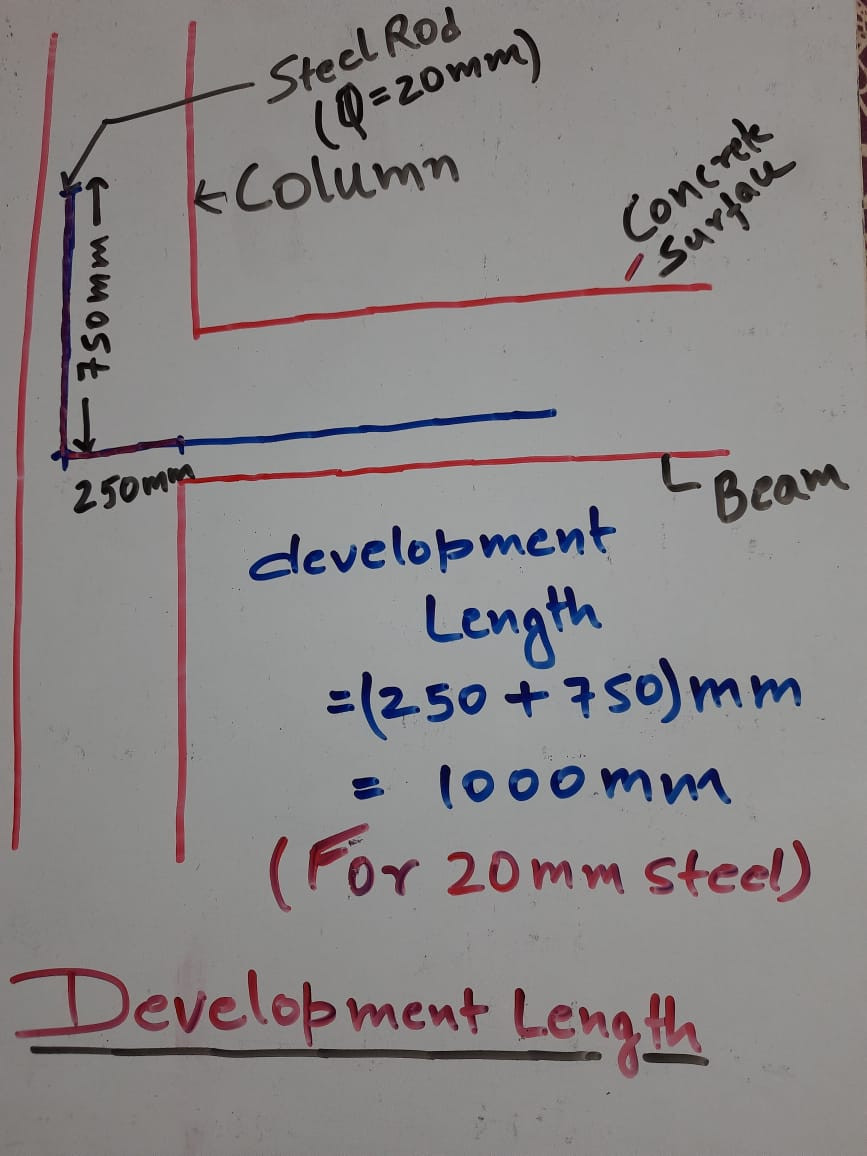 Steel Rod
(Φ=20mm)
←Column
Concrete
Surface
750mm
250mm
Beam
development
Length
=(250+750)mm
= 1000mm
(For 20mm steel)
Development Length